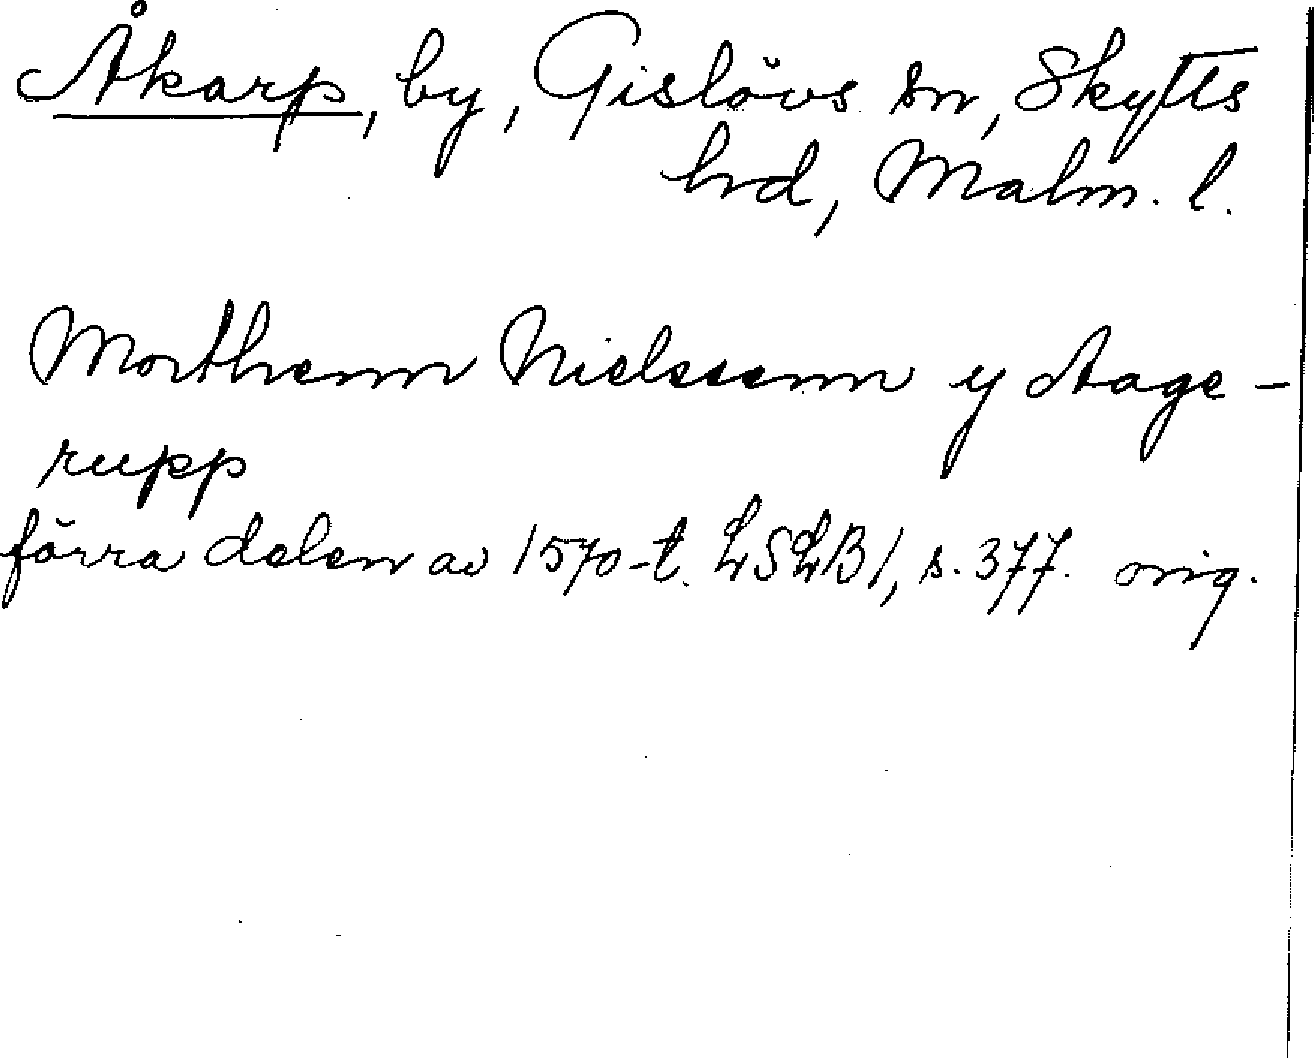 Åkarp, by, Gislövs sn, Skytts
hrd, Malm. l.
Morthenn Nielssenn y Aage-
rupp
förra delen av 1570-t. LSLB1, s. 377. orig.